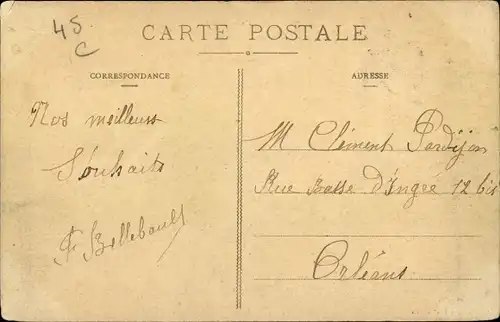 45
C
CARTE POSTALE
CORRESPONDANCE
Nos meilleurs
Souhaits
Bellebault
ADRESSE
M Clément
Rue Basse d'Ingré 12 bis
Orléans